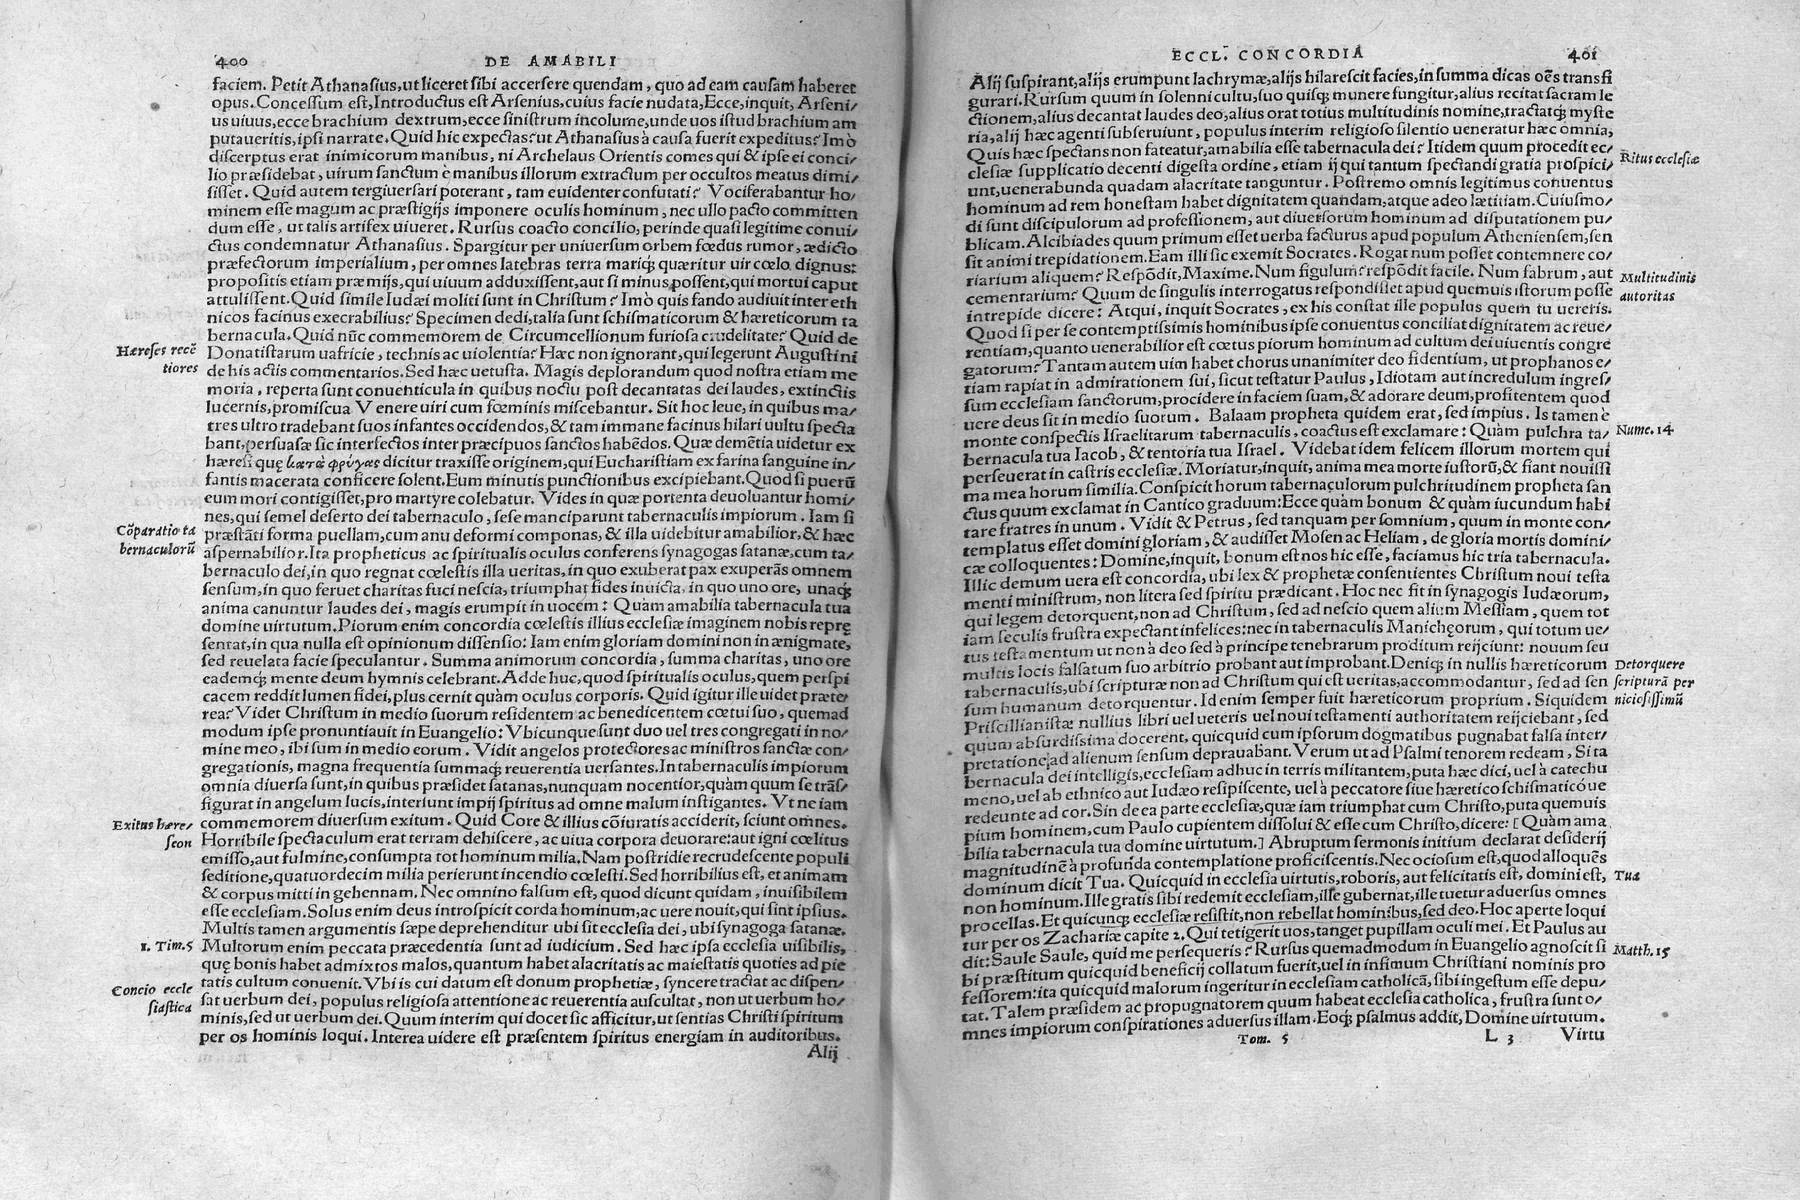 400 DE AMABILI
faciem. Petit Athanasius, ut liceret sibi accersere quendam, quo ad eam causam haberet
opus. Concessum est, Introductus est Arsenius, cuius facie nudata, Ecce, inquit, Arseni/
us uiuus, ecce brachium dextrum, ecce sinistrum incolume, unde uos istud brachium am
putaueritis, ipsi narrate. Quid hic expectas? ut Athanasius à causa fuerit expeditus? Imò
discerptus erat inimicorum manibus, ni Archelaus Orientis comes qui & ipse ei conci/
lio præsidebat, uirum sanctum è manibus illorum extractum per occultos meatus dimi/
sisset. Quid autem tergiuersari poterant, tam euidenter confutati? Vociferabantur ho/
minem esse magum ac præstigijs imponere oculis hominum, nec ullo pacto committen
dum esse, ut talis artifex uiueret. Rursus coacto concilio, perinde quasi legitime conui/
ctus condemnatur Athanasius. Spargitur per uniuersum orbem fœdus rumor, ædicto
præfectorum imperialium, per omnes latebras terra mariq; quæritur uir cœlo dignus:
propositis etiam præmijs, qui uiuum adduxissent, aut si minus possent, qui mortui caput
attulissent. Quid simile Iudæi moliti sunt in Christum? Imò quis fando audiuit inter eth
nicos facinus execrabilius? Specimen dedi, talia sunt schismaticorum & hæreticorum ta
bernacula. Quid nūc commemorem de Circumcellionum furiosa crudelitate? Quid de
Hæreses recē
tiores
Donatistarum uafricie, technis ac uiolentia? Hæc non ignorant, qui legerunt Augustini
de his actis commentarios. Sed hæc uetusta. Magis deplorandum quod nostra etiam me
moria, reperta sunt conuenticula in quibus noctu post decantatas dei laudes, extinctis
lucernis, promiscua Venere uiri cum fœminis miscebantur. Sit hoc leue, in quibus ma/
tres ultro tradebant suos infantes occidendos, & tam immane facinus hilari uultu specta
bant, persuasæ sic intersectos inter præcipuos sanctos habēdos. Quæ demētia uidetur ex
hæresi quę κατὰ φρύγας dicitur traxisse originem, qui Eucharistiam ex farina sanguine in/
fantis macerata conficere solent. Eum minutis punctionibus excipiebant. Quod si puerū
eum mori contigisset, pro martyre colebatur. Vides in quæ portenta deuoluantur homi/
nes, qui semel deserto dei tabernaculo, sese manciparunt tabernaculis impiorum. Iam si
Cōparatio ta
bernaculorū
præstāti forma puellam, cum anu deformi componas, & illa uidebitur amabilior, & hæc
aspernabilior. Ita propheticus ac spiritualis oculus conferens synagogas satanæ, cum ta/
bernaculo dei, in quo regnat cœlestis illa ueritas, in quo exuberat pax exuperās omnem
sensum, in quo feruet charitas fuci nescia, triumphat fides inuicta, in quo uno ore, unaq;
anima canuntur laudes dei, magis erumpit in uocem: Quàm amabilia tabernacula tua
domine uirtutum. Piorum enim concordia cœlestis illius ecclesiæ imaginem nobis reprę
sentat, in qua nulla est opinionum dissensio: Iam enim gloriam domini non in ænigmate,
sed reuelata facie speculantur. Summa animorum concordia, summa charitas, uno ore
eademq; mente deum hymnis celebrant. Adde huc, quod spiritualis oculus, quem perspi
cacem reddit lumen fidei, plus cernit quàm oculus corporis. Quid igitur ille uidet præte/
rea? Videt Christum in medio suorum residentem ac benedicentem cœtui suo, quemad
modum ipse pronuntiauit in Euangelio: Vbicunque sunt duo uel tres congregati in no/
mine meo, ibi sum in medio eorum. Vidit angelos protectores ac ministros sanctæ con/
gregationis, magna frequentia summaq; reuerentia uersantes. In tabernaculis impiorum
omnia diuersa sunt, in quibus præsidet satanas, nunquam nocentior, quàm quum se trās/
figurat in angelum lucis, intersunt impij spiritus ad omne malum instigantes. Vt ne iam
Exitus hære/
seon
commemorem diuersum exitum. Quid Core & illius cōiuratis acciderit, sciunt omnes.
Horribile spectaculum erat terram dehiscere, ac uiua corpora deuorare: aut igni cœlitus
emisso, aut fulmine, consumpta tot hominum milia. Nam postridie recrudescente populi
seditione, quatuordecim milia perierunt incendio cœlesti. Sed horribilius est, et animam
& corpus mitti in gehennam. Nec omnino falsum est, quod dicunt quidam, inuisibilem
esse ecclesiam. Solus enim deus introspicit corda hominum, ac uere nouit, qui sint ipsius.
Multis tamen argumentis sæpe deprehenditur ubi sit ecclesia dei, ubi synagoga satanæ.
1. Tim. 5
Multorum enim peccata præcedentia sunt ad iudicium. Sed hæc ipsa ecclesia uisibilis,
quę bonis habet admixtos malos, quantum habet alacritatis ac maiestatis quoties ad pie
tatis cultum conuenit. Vbi is cui datum est donum prophetiæ, syncere tractat ac dispen/
Concio eccle
siastica
sat uerbum dei, populus religiosa attentione ac reuerentia auscultat, non ut uerbum ho/
minis, sed ut uerbum dei. Quum interim qui docet sic afficitur, ut sentias Christi spiritum
per os hominis loqui. Interea uidere est præsentem spiritus energiam in auditoribus.
Alij
ECCL. CONCORDIA 401
Alij suspirant, alijs erumpunt lachrymæ, alijs hilarescit facies, in summa dicas oēs transfi
gurari. Rursum quum in solenni cultu, suo quisq; munere fungitur, alius recitat sacram le
ctionem, alius decantat laudes deo, alius orat totius multitudinis nomine, tractatq; myste
ria, alij hæc agenti subseruiunt, populus interim religioso silentio ueneratur hæc omnia,
Quis hæc spectans non fateatur, amabilia esse tabernacula dei? Itidem quum procedit ec/
Ritus ecclesiæ
clesiæ supplicatio decenti digesta ordine, etiam ij qui tantum spectandi gratia prospici/
unt, uenerabunda quadam alacritate tanguntur. Postremo omnis legitimus conuentus
hominum ad rem honestam habet dignitatem quandam, atque adeo lætitiam. Cuiusmo/
di sunt discipulorum ad professionem, aut diuersorum hominum ad disputationem pu/
blicam. Alcibiades quum primum esset uerba facturus apud populum Atheniensem, sen
sit animi trepidationem. Eam illi sic exemit Socrates. Rogat num posset contemnere co/
riarium aliquem? Respōdit, Maxime. Num figulum? respōdit facile. Num fabrum, aut
Multitudinis
autoritas
cementarium? Quum de singulis interrogatus respondisset apud quemuis istorum posse
intrepide dicere: Atqui, inquit Socrates, ex his constat ille populus quem tu uereris.
Quod si per se contemptissimis hominibus ipse conuentus conciliat dignitatem ac reue/
rentiam, quanto uenerabilior est cœtus piorum hominum ad cultum dei uiuentis congre
gatorum? Tantam autem uim habet chorus unanimiter deo fidentium, ut prophanos e/
tiam rapiat in admirationem sui, sicut testatur Paulus, Idiotam aut incredulum ingres/
sum ecclesiam sanctorum, procidere in faciem suam, & adorare deum, profitentem quod
uere deus sit in medio suorum. Balaam propheta quidem erat, sed impius. Is tamen è
monte conspectis Israelitarum tabernaculis, coactus est exclamare: Quàm pulchra ta/
Nume. 14
bernacula tua Iacob, & tentoria tua Israel. Videbat idem felicem illorum mortem qui
perseuerat in castris ecclesiæ. Moriatur, inquit, anima mea morte iustorū, & fiant nouissi
ma mea horum similia. Conspicit horum tabernaculorum pulchritudinem propheta san
ctus quum exclamat in Cantico graduum: Ecce quàm bonum & quàm iucundum habi
tare fratres in unum. Vidit & Petrus, sed tanquam per somnium, quum in monte con/
templatus esset domini gloriam, & audisset Mosen ac Heliam, de gloria mortis domini/
cæ colloquentes: Domine, inquit, bonum est nos hic esse, faciamus hic tria tabernacula.
Illic demum uera est concordia, ubi lex & prophetæ consentientes Christum noui testa
menti ministrum, non litera sed spiritu prædicant. Hoc nec fit in synagogis Iudæorum,
qui legem detorquent, non ad Christum, sed ad nescio quem alium Messiam, quem tot
iam seculis frustra expectant infelices: nec in tabernaculis Manichęorum, qui totum ue/
tus testamentum ut non à deo sed à principe tenebrarum proditum reijciunt: nouum seu
multis locis falsatum suo arbitrio probant aut improbant. Deniq; in nullis hæreticorum
Detorquere
scripturā per
niciosissimū
tabernaculis, ubi scripturæ non ad Christum qui est ueritas, accommodantur, sed ad sen
sum humanum detorquentur. Id enim semper fuit hæreticorum proprium. Siquidem
Priscillianistæ nullius libri uel ueteris uel noui testamenti authoritatem reijciebant, sed
quum absurdissima docerent, quicquid cum ipsorum dogmatibus pugnabat falsa inter/
pretatione ad alienum sensum deprauabant. Verum ut ad Psalmi tenorem redeam, Si ta
bernacula dei intelligis, ecclesiam adhuc in terris militantem, puta hæc dici, uel à catechu
meno, uel ab ethnico aut Iudæo resipiscente, uel à peccatore siue hæretico schismaticóue
redeunte ad cor. Sin de ea parte ecclesiæ, quæ iam triumphat cum Christo, puta quemuis
pium hominem, cum Paulo cupientem dissolui & esse cum Christo, dicere: [Quàm ama
bilia tabernacula tua domine uirtutum.] Abruptum sermonis initium declarat desiderij
magnitudinē à profunda contemplatione proficiscentis. Nec ociosum est, quod alloquēs
dominum dicit Tua. Quicquid in ecclesia uirtutis, roboris, aut felicitatis est, domini est,
Tua
non hominum. Ille gratis sibi redemit ecclesiam, ille gubernat, ille tuetur aduersus omnes
procellas. Et quicunq; ecclesiæ resistit, non rebellat hominibus, sed deo. Hoc aperte loqui
tur per os Zachariæ capite 2. Qui tetigerit uos, tanget pupillam oculi mei. Et Paulus au
dit: Saule Saule, quid me persequeris? Rursus quemadmodum in Euangelio agnoscit si
Matth. 15
bi præstitum quicquid beneficij collatum fuerit, uel in infimum Christiani nominis pro
fessorem: ita quicquid malorum ingeritur in ecclesiam catholicā, sibi ingestum esse depu/
tat. Talem præsidem ac propugnatorem quum habeat ecclesia catholica, frustra sunt o/
mnes impiorum conspirationes aduersus illam. Eoq; psalmus addit, Domine uirtutum.
Tom. 5 L 3 Virtu